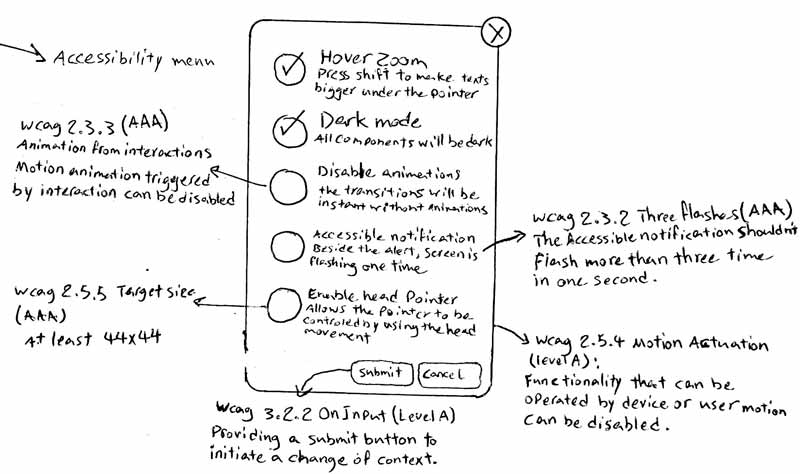 Accessibility menu
X
Hover Zoom
Press shift to make texts
bigger under the pointer
Dark mode
All components will be dark
Disable animations
the transitions will be
instant without animations
Accessible notification
Beside the alert, screen is
flashing one time
Enable head Pointer
Allows the Pointer to be
controled by using the head
movement
submit
cancel
wcag 2.3.3 (AAA)
Animation from interactions
Motion animation triggered
by interaction can be disabled
wcag 2.5.5 Target size
(AAA)
At least 44x44
wcag 2.3.2 Three flashes (AAA)
The Accessible notification shouldn't
Flash more than three time
in one second.
wcag 2.5.4 Motion Actuation
(level A):
Functionality that can be
operated by device or user motion
can be disabled.
wcag 3.2.2 On Input (Level A)
Providing a submit button to
initiate a change of context.